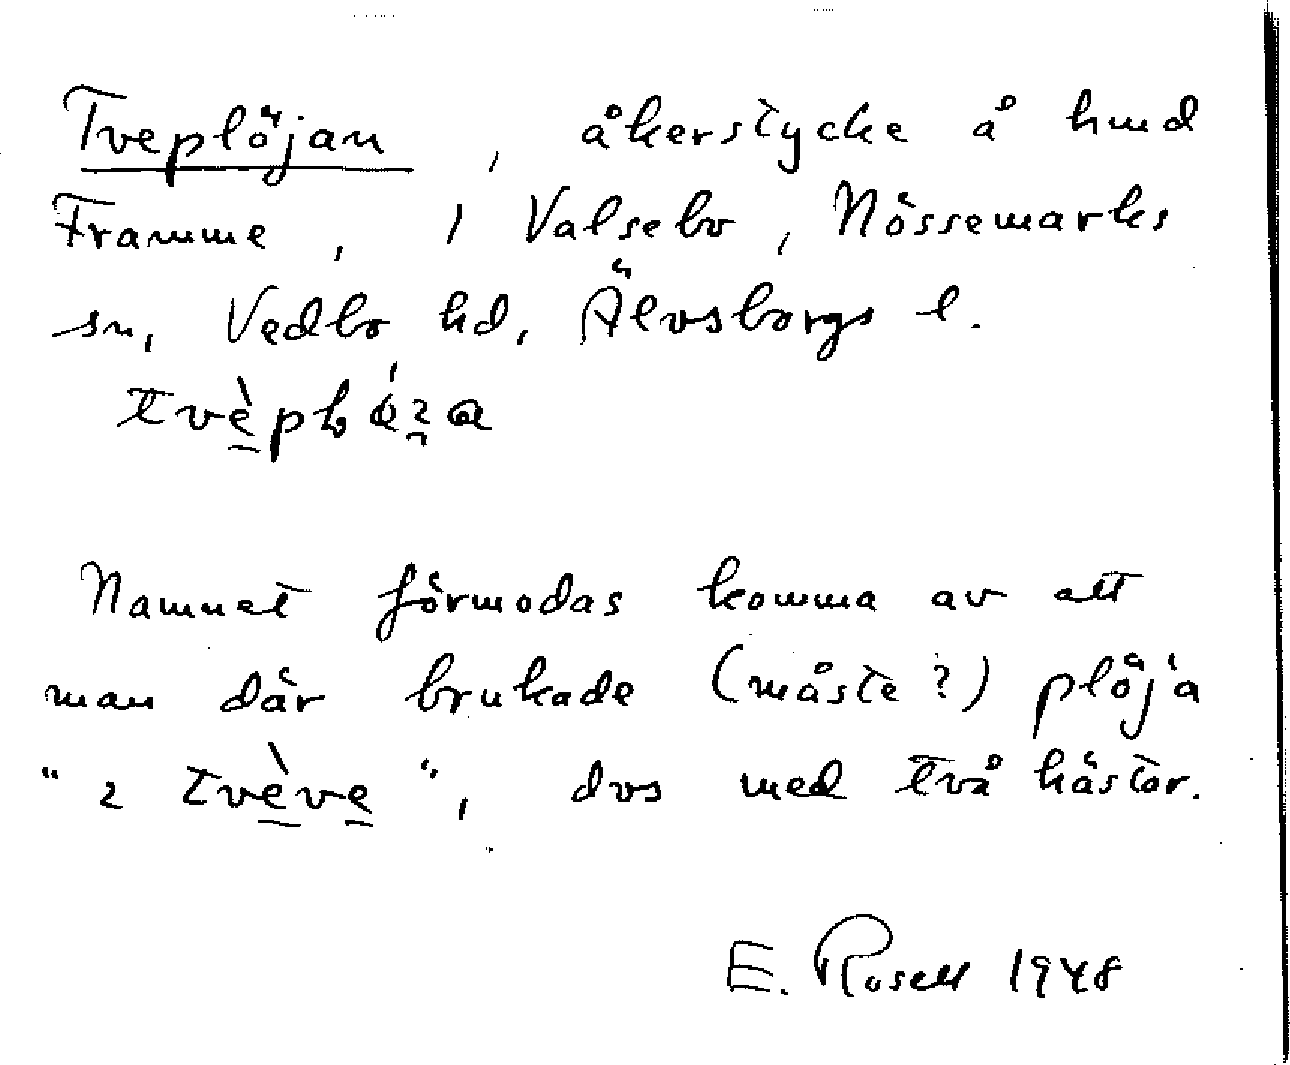 Tveplöjan, åkerstycke å hmd
Framme, i Valsebo, Nössemarks
sn, Vedbo hd, Älvsborgs l.
Namnet förmodas komma av att
man där brukade (måste?) plöja
"2 tvève", dvs med två hästar.
E. Rosell 1948